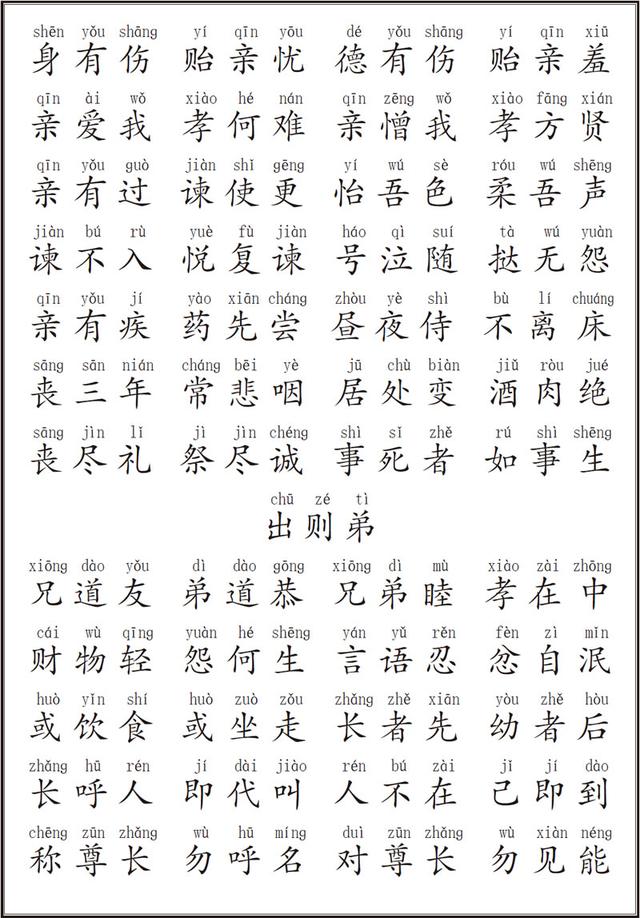 shēn yǒu shāng yí qīn yōu dé yǒu shāng yí qīn xiū
身有伤 贻亲忧 德有伤 贻亲羞
qīn ài wǒ xiào hé nán qīn zēng wǒ xiào fāng xián
亲爱我 孝何难 亲憎我 孝方贤
qīn yǒu guò jiàn shǐ gēng yí wú sè róu wú shēng
亲有过 谏使更 怡吾色 柔吾声
jiàn bú rù yuè fù jiàn háo qì suí tà wú yuàn
谏不入 悦复谏 号泣随 挞无怨
qīn yǒu jí yào xiān cháng zhòu yè shì bù lí chuáng
亲有疾 药先尝 昼夜侍 不离床
sāng sān nián cháng bēi yè jū chù biàn jiǔ ròu jué
丧三年 常悲咽 居处变 酒肉绝
sāng jìn lǐ jì jìn chéng shì sǐ zhě rú shì shēng
丧尽礼 祭尽诚 事死者 如事生
chū zé tì
出则弟
xiōng dào yǒu dì dào gōng xiōng dì mù xiào zài zhōng
兄道友 弟道恭 兄弟睦 孝在中
cái wù qīng yuàn hé shēng yán yǔ rěn fèn zì mǐn
财物轻 怨何生 言语忍 忿自泯
huò yǐn shí huò zuò zǒu zhǎng zhě xiān yòu zhě hòu
或饮食 或坐走 长者先 幼者后
zhǎng hū rén jí dài jiào rén bú zài jǐ jí dào
长呼人 即代叫 人不在 己即到
chēng zūn zhǎng wù hū míng duì zūn zhǎng wù xiàn néng
称尊长 勿呼名 对尊长 勿见能